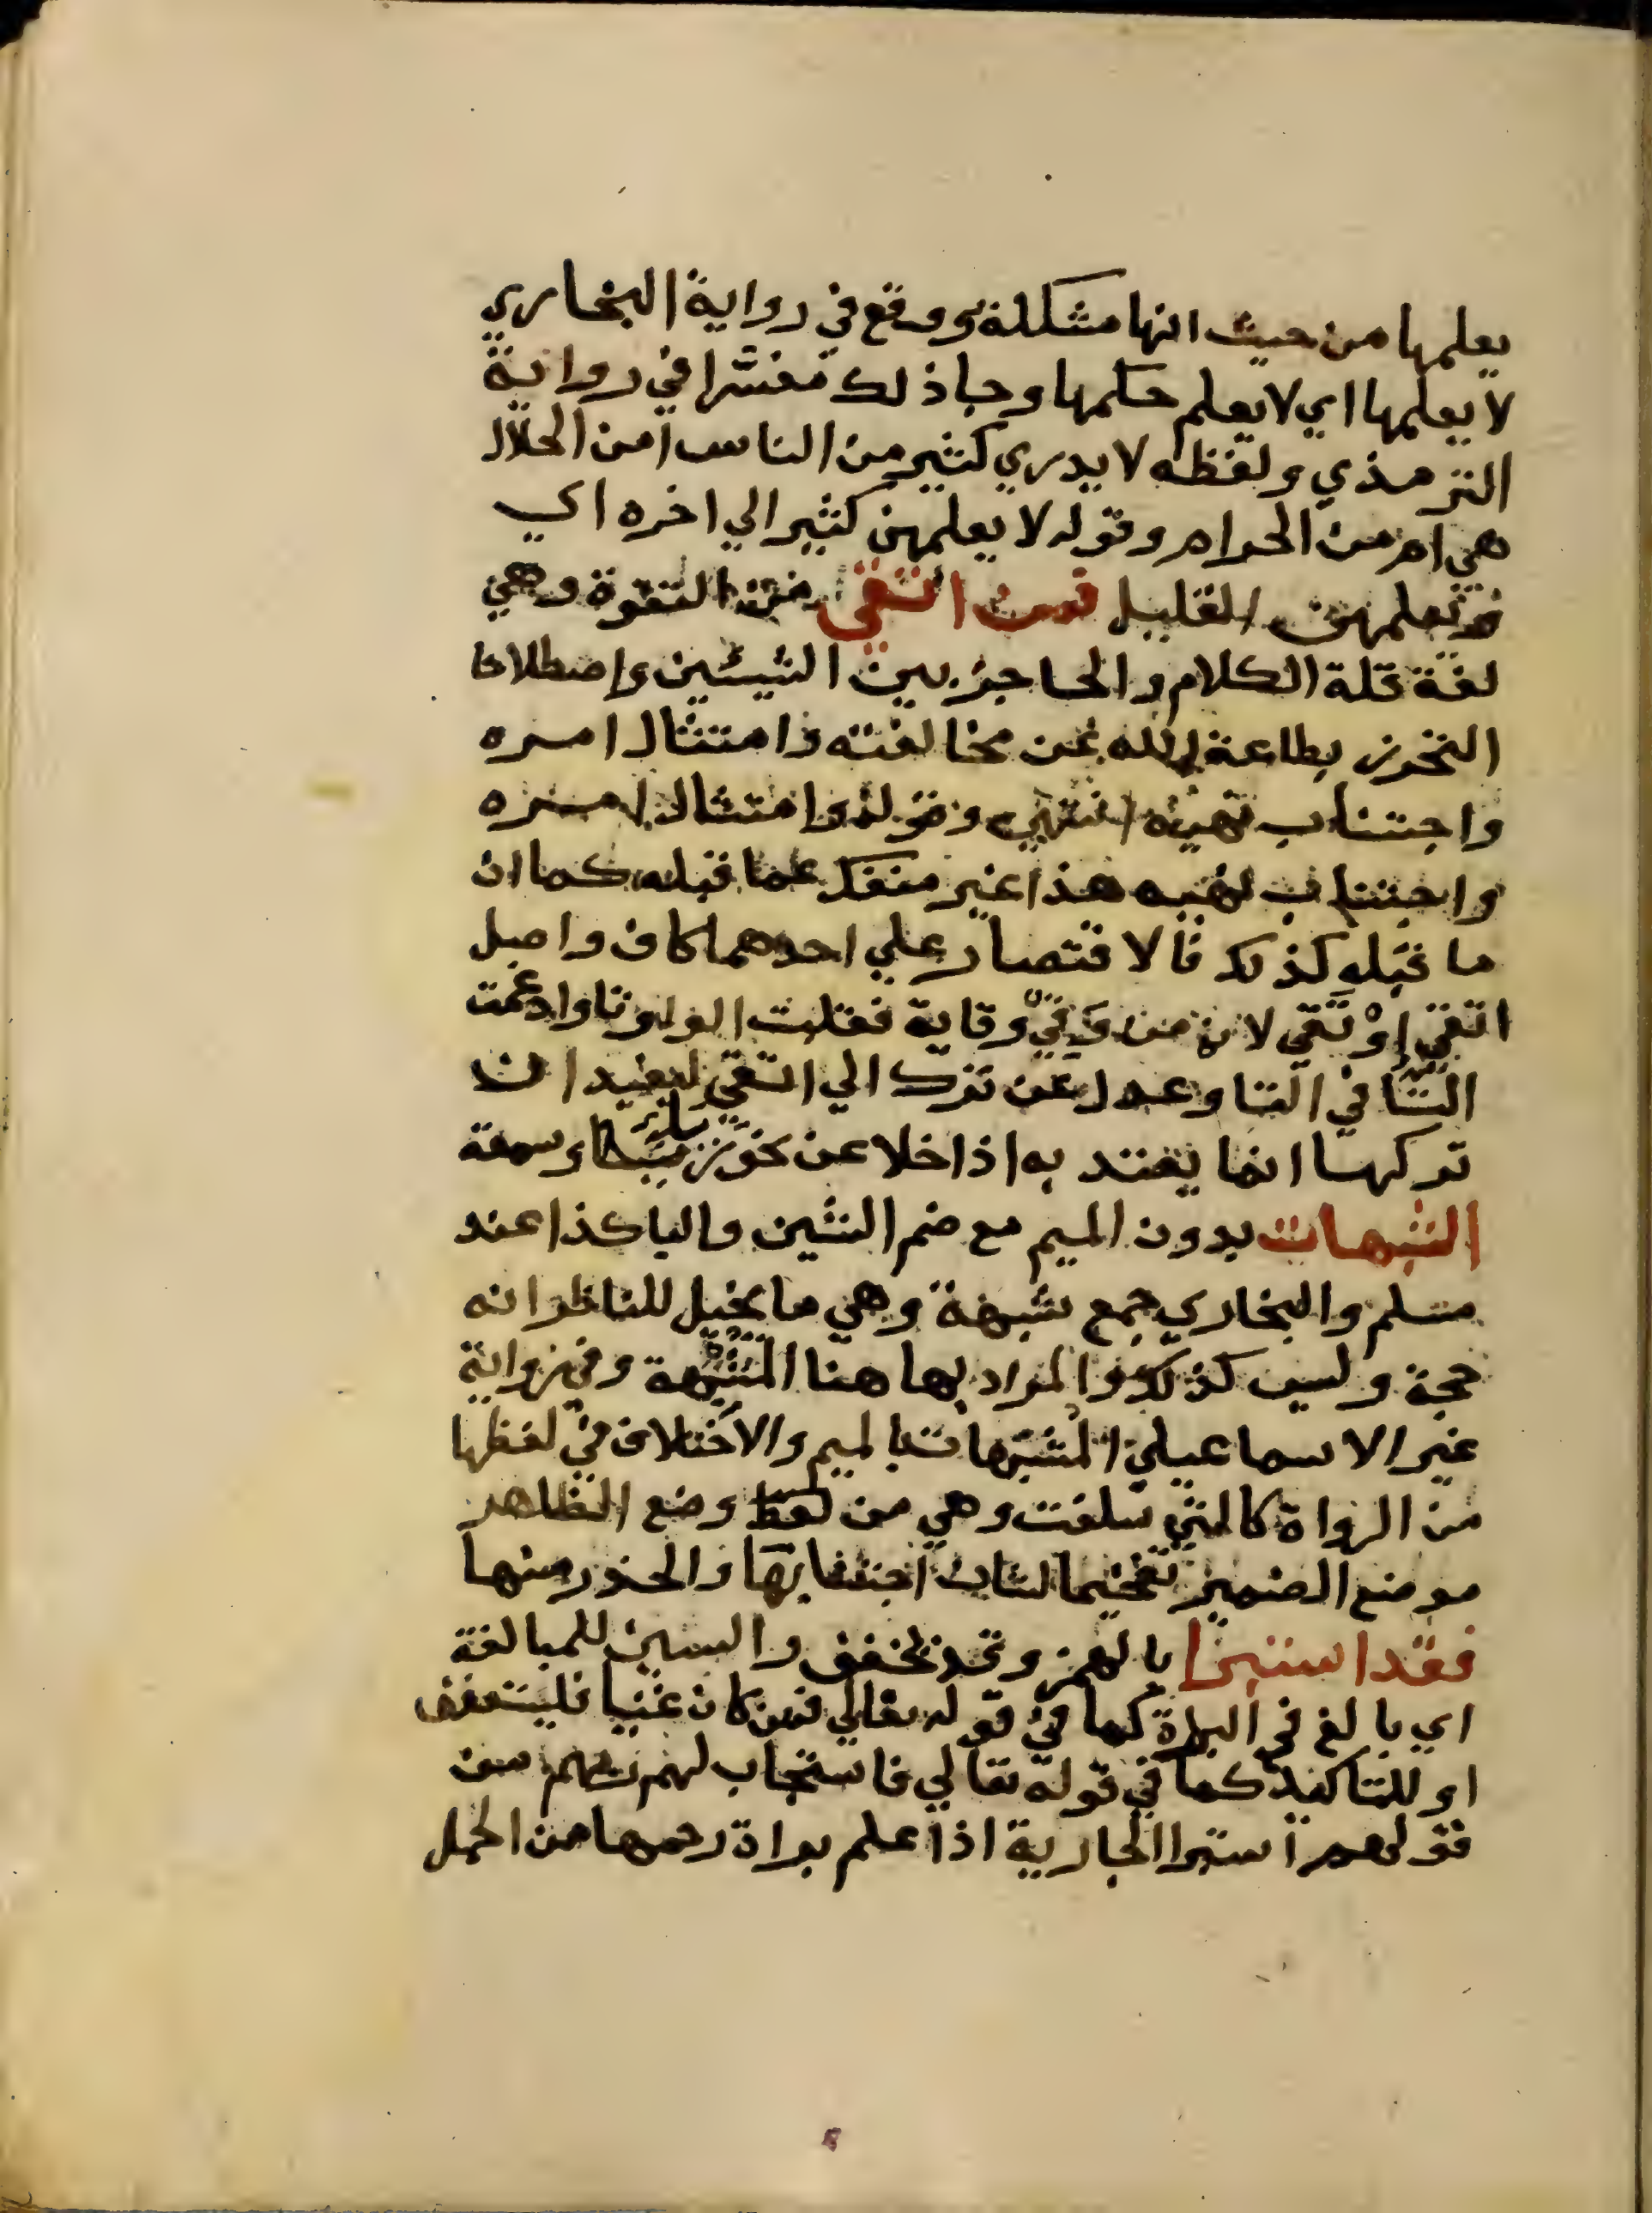 يعلمها من حيث انها مشكلة ووقع في رواية البخاري
لا يعلمها اي لا يعلم حكمها وجا ذلك مفسرا في رواية
الترمذي ولفظه لا يدري كثير من الناس امن الحلال
هي ام من الحرام وقوله لا يعلمهن كثير الي اخره اي
ويعلمهن القليل فمن اتقي من التقوة وهي
لغة قلة الكلام والحاجز بين الشيئين واصطلاحا
التحرز بطاعة الله عن مخالفته وامتثال امره
واجتناب نهيه انتهي وقوله وامتثال امره
واجتناب نهيه هذا غير منفك عما قبله كما ان
ما قبله كذلك فالاقتصار علي احدهما كاف واصل
اتقي اوتقي لانه من وقي وقاية فقلبت الواو تا وادغمت
التا في التا وعدل عن ترك الي اتقي ليفيد ان
تركها انما يعتد به اذا خلا عن نحو رياء وسمعة
الشبهات بدون الميم مع ضم الشين والبا كذا عند
مسلم والبخاري جمع شبهة وهي ما يخيل للناظر انه
حجة وليس كذلك والمراد بها هنا المشتبهة وفي رواية
غير الاسماعيلي المشبهات بالميم والاختلاف في لفظها
من الرواة كالتي سلفت وهي من وضع الظاهر
موضع الضمير تفخيما لشان اجتنابها والحذر منها
فقد استبرا بالهمز وقد يخفف والسين للمبالغة
اي بالغ في البراة كما في قوله تعالي فمن كان غنيا فليستعفف
او للتاكيد كما في قوله تعالي فاستجاب لهم ربهم من
قولهم استبرا الجارية اذا علم براة رحمها من الحمل